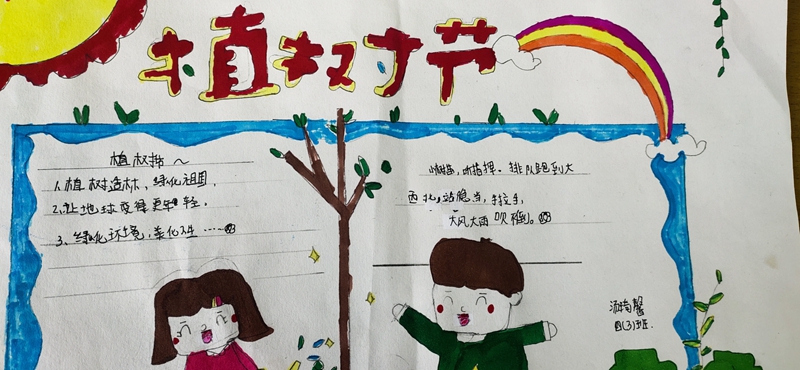 植树节
植树节~
1、植树造林,绿化祖国,
2、让地球变得更年轻。
3、绿化环境,美化人生……
听指挥。排队跑到大
西北,站稳点,手拉手,
大风大雨吹不倒。
四(3)班.